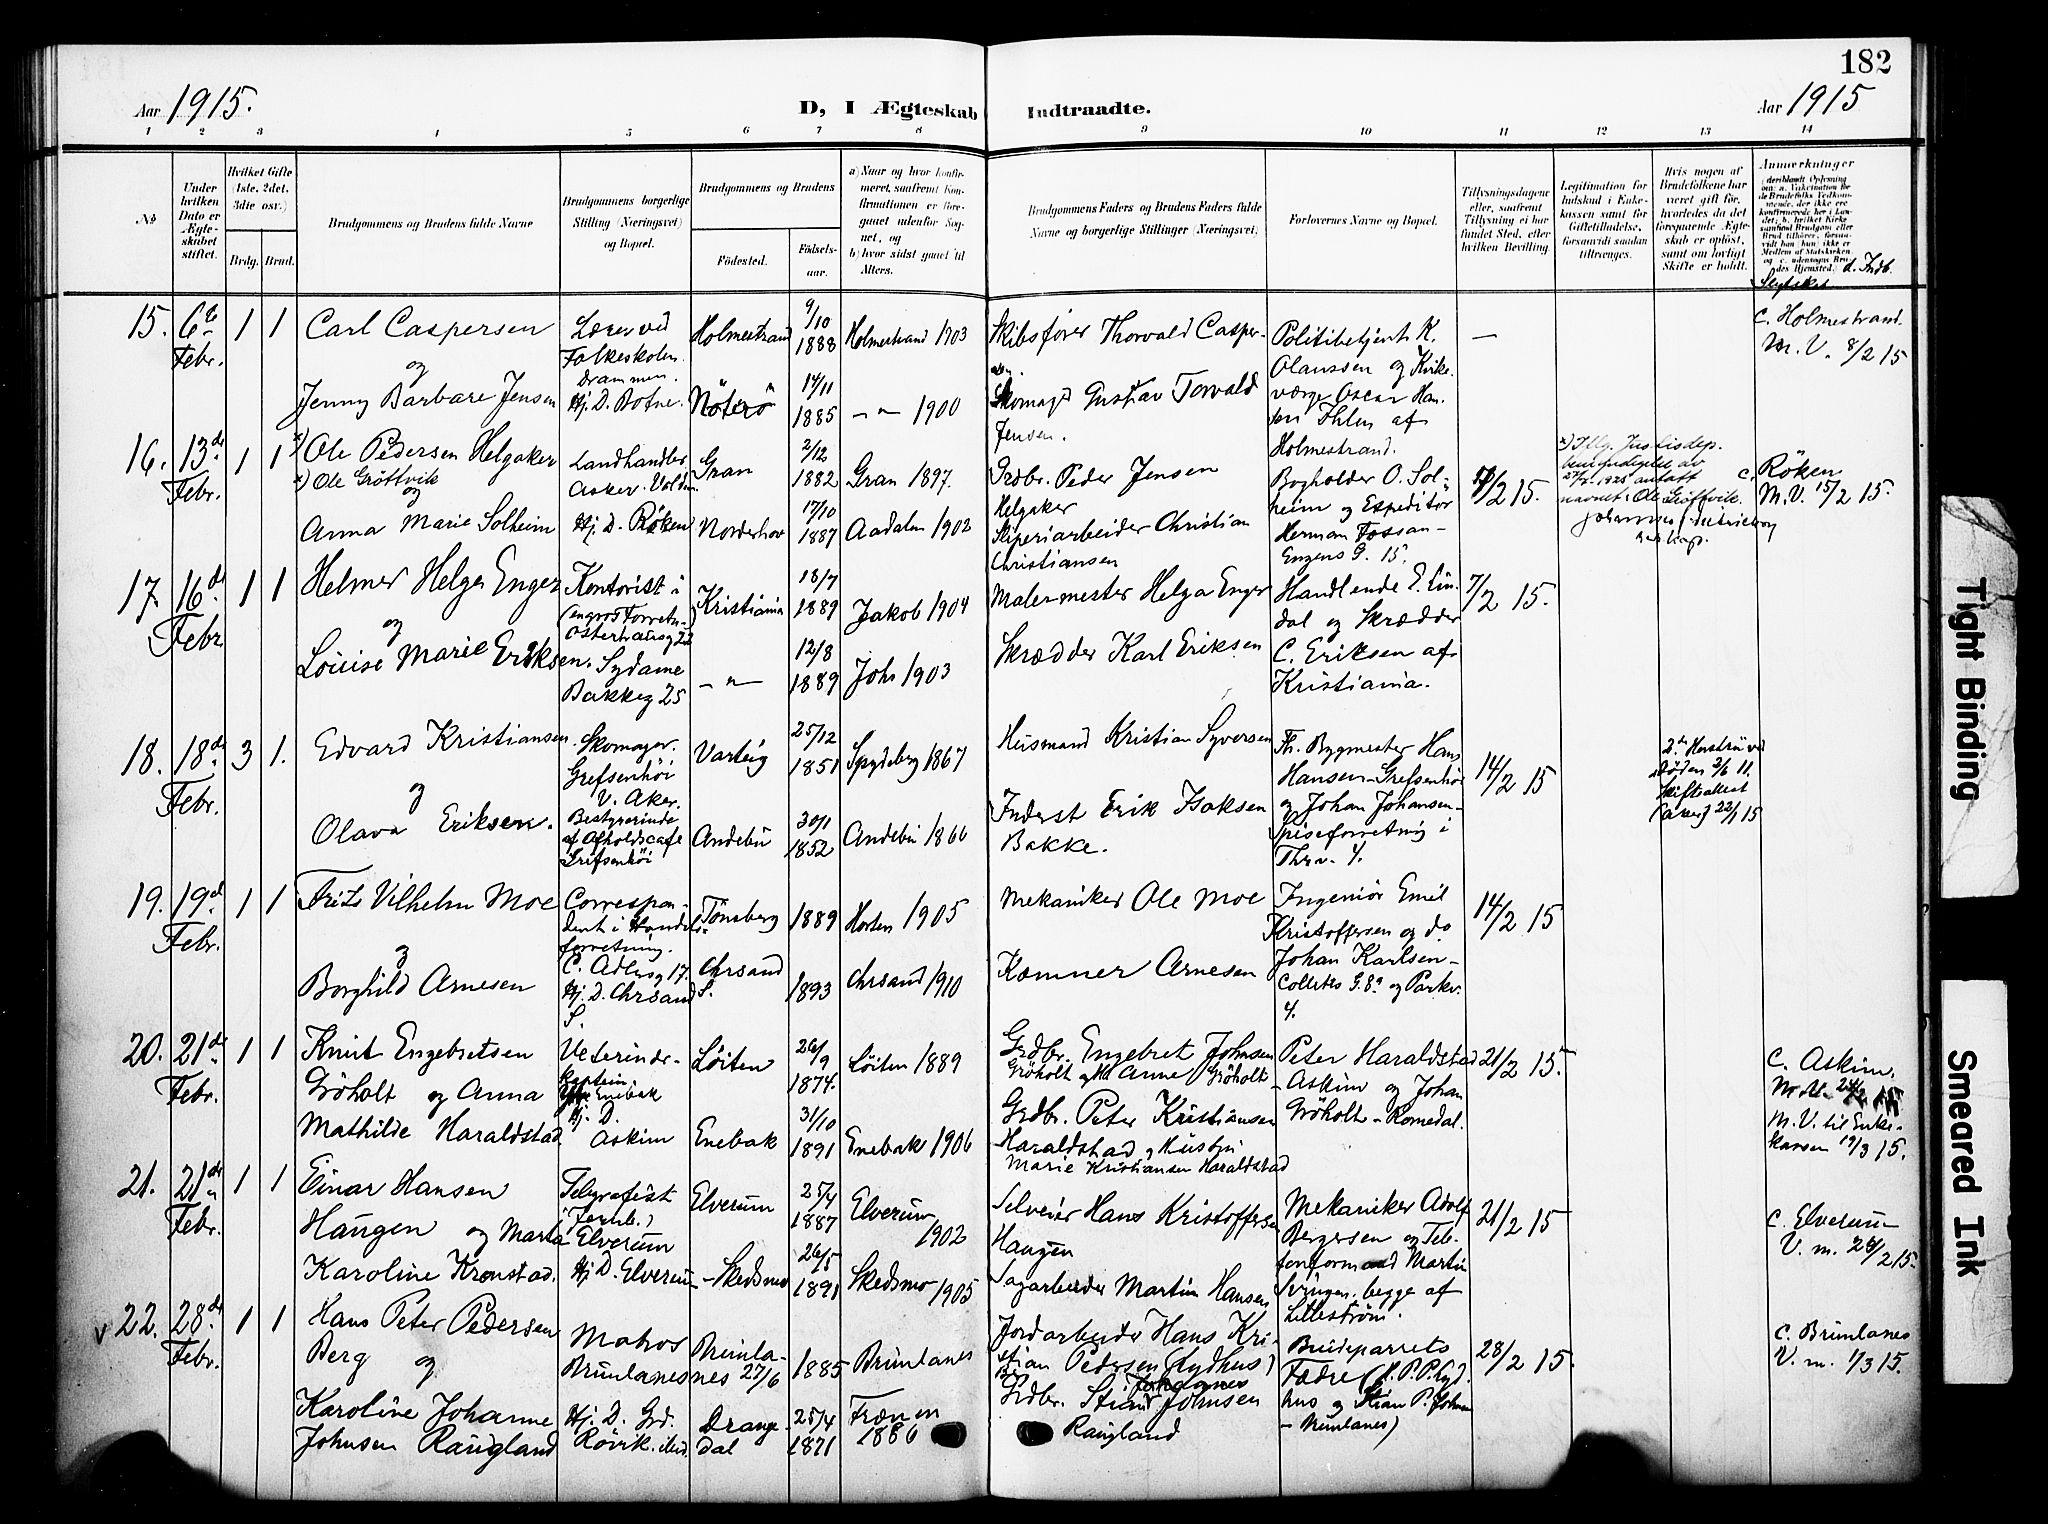 182
Aar 1915.
D, I Ægteskab Indtraadte.
Aar 1915
1 2 3 4 5 6 7 8 9 10 11 12 13 14
No
Under hvilken Dato er Ægteskabet stiftet.
Hvilket Gifte (1ste, 2det, 3die osv.)
Brdg. Brud.
Brudgommens og Brudens fulde Navne
Brudgommens borgerlige Stilling (Næringsvei) og Bopæl.
Brudgommens og Brudens
Fødested.
Fødselsaar.
a) Naar og hvor konfirmeret, saafremt Konfirmationen er foregaaet udenfor Sognet, og
b) hvor sidst gaaet til Alters.
Brudgommens Faders og Brudens Faders fulde Navne og borgerlige Stillinger (Næringsvei)
Forlovernes Navne og Bopæl.
Tillysningsdagene eller, saafremt Tillysning ei har fundet Sted, efter hvilken Bevilling.
Legitimation for Indskud i Enkekassen samt for Giftetilladelse, forsaavidt saadan tiltrænges.
Hvis nogen af Brudefolkene har været gift før, hvorledes da det foregaaende Ægteskab er opløst, samt om lovligt Skifte er holdt.
Anmærkninger
d. Indb. Slegtskab
15. 6te Febr. 1 1
Carl Caspersen
og
Jenny Barbare Jensen
Lærer ved
Folkeskolen.
Drammen.
Hj. D. Botne.
Holmestrand
Nøterø
9/10 1888
14/11 1885
Holmestrand 1903
— " — 1900
Skibsfører Thorvald Caspersen.
Skomag Gustav Torvald
Jensen.
Politibetjent K.
Olaussen og Kirkeværge
Oscar Hansen
Ihlen af
Holmestrand.
—
C. Holmestrand
M. V. 8/2 15
16. 13de Febr. 1 1
x) Ole Pedersen Helgaker
x) Ole Gröttvik
og
Anna Marie Solheim
Landhandler
Asker.
Hj. D. Røken
Gran
Norderhov
2/12 1882
17/10 1887
Gran 1897.
Aadalen 1902
Grdbr. Peder Jensen
Helgaker
Sliperiarbeider Christian
Christiansen
Bogholder O. Solheim
og Expeditør
Herman Fossan —
Engens G. 15.
/2 15.
x) Iflg. Justisdep.
bemyndigelse av
1925 antatt
navnet: Ole Gröttvik.
c. Røken
M. V. 15/2 15.
17. 16de Febr 1 1
Helmer Helge Enger
og
Louise Marie Eriksen.
Kontorist i
(engros Forretn.)
Osterhausg 22
Sydame
Bakkeg 25
Kristiania
— " —
18/7 1889
12/8 1889
Jakob 1904
Joh. 1903
Malermester Helge Enger
Skrædder Karl Eriksen
Handlende E. Lindal
og Skrædder
C. Eriksen af
Kristiania.
7/2 15.
18. 18de Febr. 3 1.
Edvard Kristiansen
og
Olava Eriksen.
Skomager.
Grefsenhöi
V. Aker.
Bestyrerinde
af Afholdscafe
Grefsenhöi
Varteig
Andebu
25/12 1851
30/1 1852
Spydeberg 1867
Andebu 1866
Husmand Kristian Syversen
Inderst Erik Isaksen
Bakke.
Fh. Bygmester Hans
Hansen — Grefsenhöi
og Johan Johansen —
Spiseforretning i
Thrv. 4.
14/2 15
2den Hustru ved
Døden 2/6 11.
Skifteattest
(Aker) 22/1 15
19. 19de Febr. 1 1
Frits Vilhelm Moe
og
Borghild Arnesen
Correspondent
i Handelsforretning.
C. Adlersg 17.
Hj. D. Chrsand
S.
Tönsberg
Chrsand
S.
1889
1893
Horten 1905
Chrsand 1910
Mekaniker Ole Moe
Kæmner Arnesen
Ingeniör Emil
Kristoffersen og do
Johan Karlsen —
Collets G. 8a og Parkv.
4.
14/2 15
20. 21de Febr. 1 1
Knut Engebretsen
Gröholt og Anna
Mathilde Haraldstad
Veterinær-
kaptein
Enebak
Hj. D.
Askim
Löiten
Enebak
26/9 1874.
31/10 1891
Löiten 1889
Enebak 1906
Grdbr. Engebret Johnsen
Gröholt og Anne Gröholt
Grdbr. Peter Kristiansen
Haraldstad og Hustru
Marie Kristiansen Haraldstad
Peter Haraldstad
— Askim og Johan
Gröholt — Romedal.
21/2 15.
C. Askim.
M. V. til Enkekassen
19/3 15.
21. 21de Febr. 1 1
Einar Hansen
Haugen og Marta
Karoline Kronstad.
Telegrafist
(Jernb.)
Elverum
Hj. D. Elverum
Elverum
Skedsmo
25/4 1887
26/5 1891
Elverum
1902
Skedsmo 1905
Selveier Hans Kristoffersen
Haugen
Sagarbeider Martin Hansen
Mekaniker Adolf
Bergersen og Telefonformand
Martin
Svingen, begge af
Lilleström.
21/2 15
C. Elverum
V. m. 2/2 15.
v 22. 28de Febr. 1 1
Hans Peter Pedersen
Berg og
Karoline Johanne
Johnsen Raugland
Matros
Brunlanes
Hj. D. Grd.
Rövik. ibid.
Brunlanes
27/6
Drangedal
1885
25/4 1871
Brunlanes
Frænen
1886
Jordarbeider Hans Kristian
Pedersen (Lydhus)
Grdbr. Stian Johannes Johnsen
Raugland
Brudeparrets
Fædre (H. P. P. Lydhus
og Stian P. Johnsen
— Brunlanes)
28/2 15.
C. Brunlanes
V. m. 1/3 15.
Tight Binding
Smeared Ink